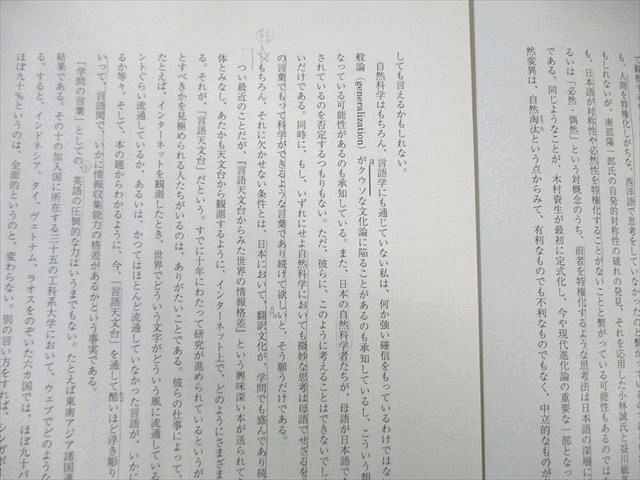 て観
も、人間を特権化しがちな、西洋語で思考をしていなかった
もしれないが、南部陽一郎氏の自発的対称性の破れの発見、それを応用した小林誠氏と益川敏英
も、日本語が対称性や必然性を特権化することがないことと繋がっている可能性もあるのではな
るいは「必然/偶然」という対概念のうち、前者を特権化するような思考法は日本語の深層に
である。同じようなことが、木村資生が最初に定式化し、今や現代進化論の重要な一部となっ
然変異は、自然淘汰という点からみて、有利なものでも不利なものでもなく、中立的なものが
しても言えるかもしれない。
自然科学はもちろん、言語学にも通じていない私は、何か強い確信をもっているわけではな
般論（generalization）がクウソな文化論に陥ることがあるのも承知しているし、こういう類
なっている可能性があるのも承知している。また、日本の自然科学者たちが、母語が日本語で
されているのを否定するつもりもない。ただ、彼らに、このように考えることはできないでし
いだけである。同時に、もし、いずれにせよ自然科学においても微妙な思考は母語でせざるを
の言葉でもって科学ができるような言葉であり続けて欲しいと、そう願うだけである。
もちろん、それに欠かせない条件とは、日本において、翻訳文化が、学問でも盛んであり続
つい最近のことだが、『言語天文台からみた世界の情報格差』という興味深い本が送られて
体とみなし、あたかも天文台から観測するように、インターネット上で、どのようにさまざま
る。それが、「言語天文台」だという。すでに十年にわたって研究が進められているというが
とすべきかを見極められる人たちがいるのは、ありがたいことである。彼らの仕事によって、
たとえば、インターネットを観測したとき、世界でどういう文字がどういう風に流通している
ントぐらい流通しているか、あるいは、かつてはほとんど流通していなかった言語が、いかに
るか等々。そして、本の題からわかるように、今、「言語天文台」を通して酷いほど浮き彫り
いって、言語間で、いかに情報収集能力の格差があるかという事実である。
「学問の言葉」としての、英語の圧倒的な力はいうまでもない。たとえば東南アジア諸国連
結果である。その十の加入国に所在する三十五の工科系大学において、ウェブでどのような
る。すると、インドネシア、タイ、ヴェトナム、ラオスをのぞいた六カ国では、ほぼ九十パ
ほぼ九十％というのは、全面的というのと、変わらない。別の言い方をすれば、シンガポ